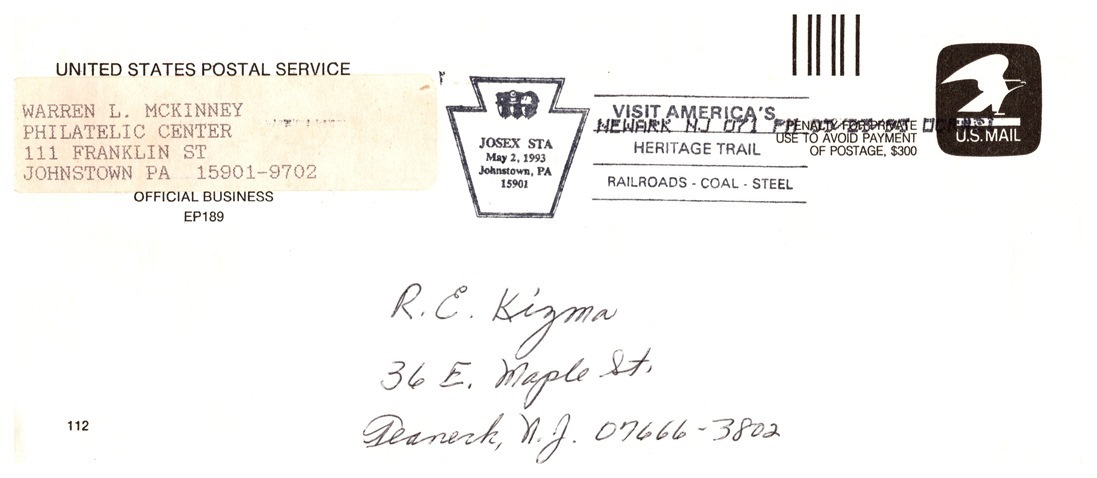 UNITED STATES POSTAL SERVICE
WARREN L. MCKINNEY
PHILATELIC CENTER
111 FRANKLIN ST
JOHNSTOWN PA 15901-9702
OFFICIAL BUSINESS
EP189
JOSEX STA
May 2, 1993
Johnstown, PA
15901
VISIT AMERICA'S
NEWARK NJ 071 PM
HERITAGE TRAIL
RAILROADS - COAL - STEEL
PENALTY FOR PRIVATE
USE TO AVOID PAYMENT
OF POSTAGE, $300
U.S. MAIL
R. E. Kizma
36 E. Maple St.
Teaneck, N.J. 07666-3802
112